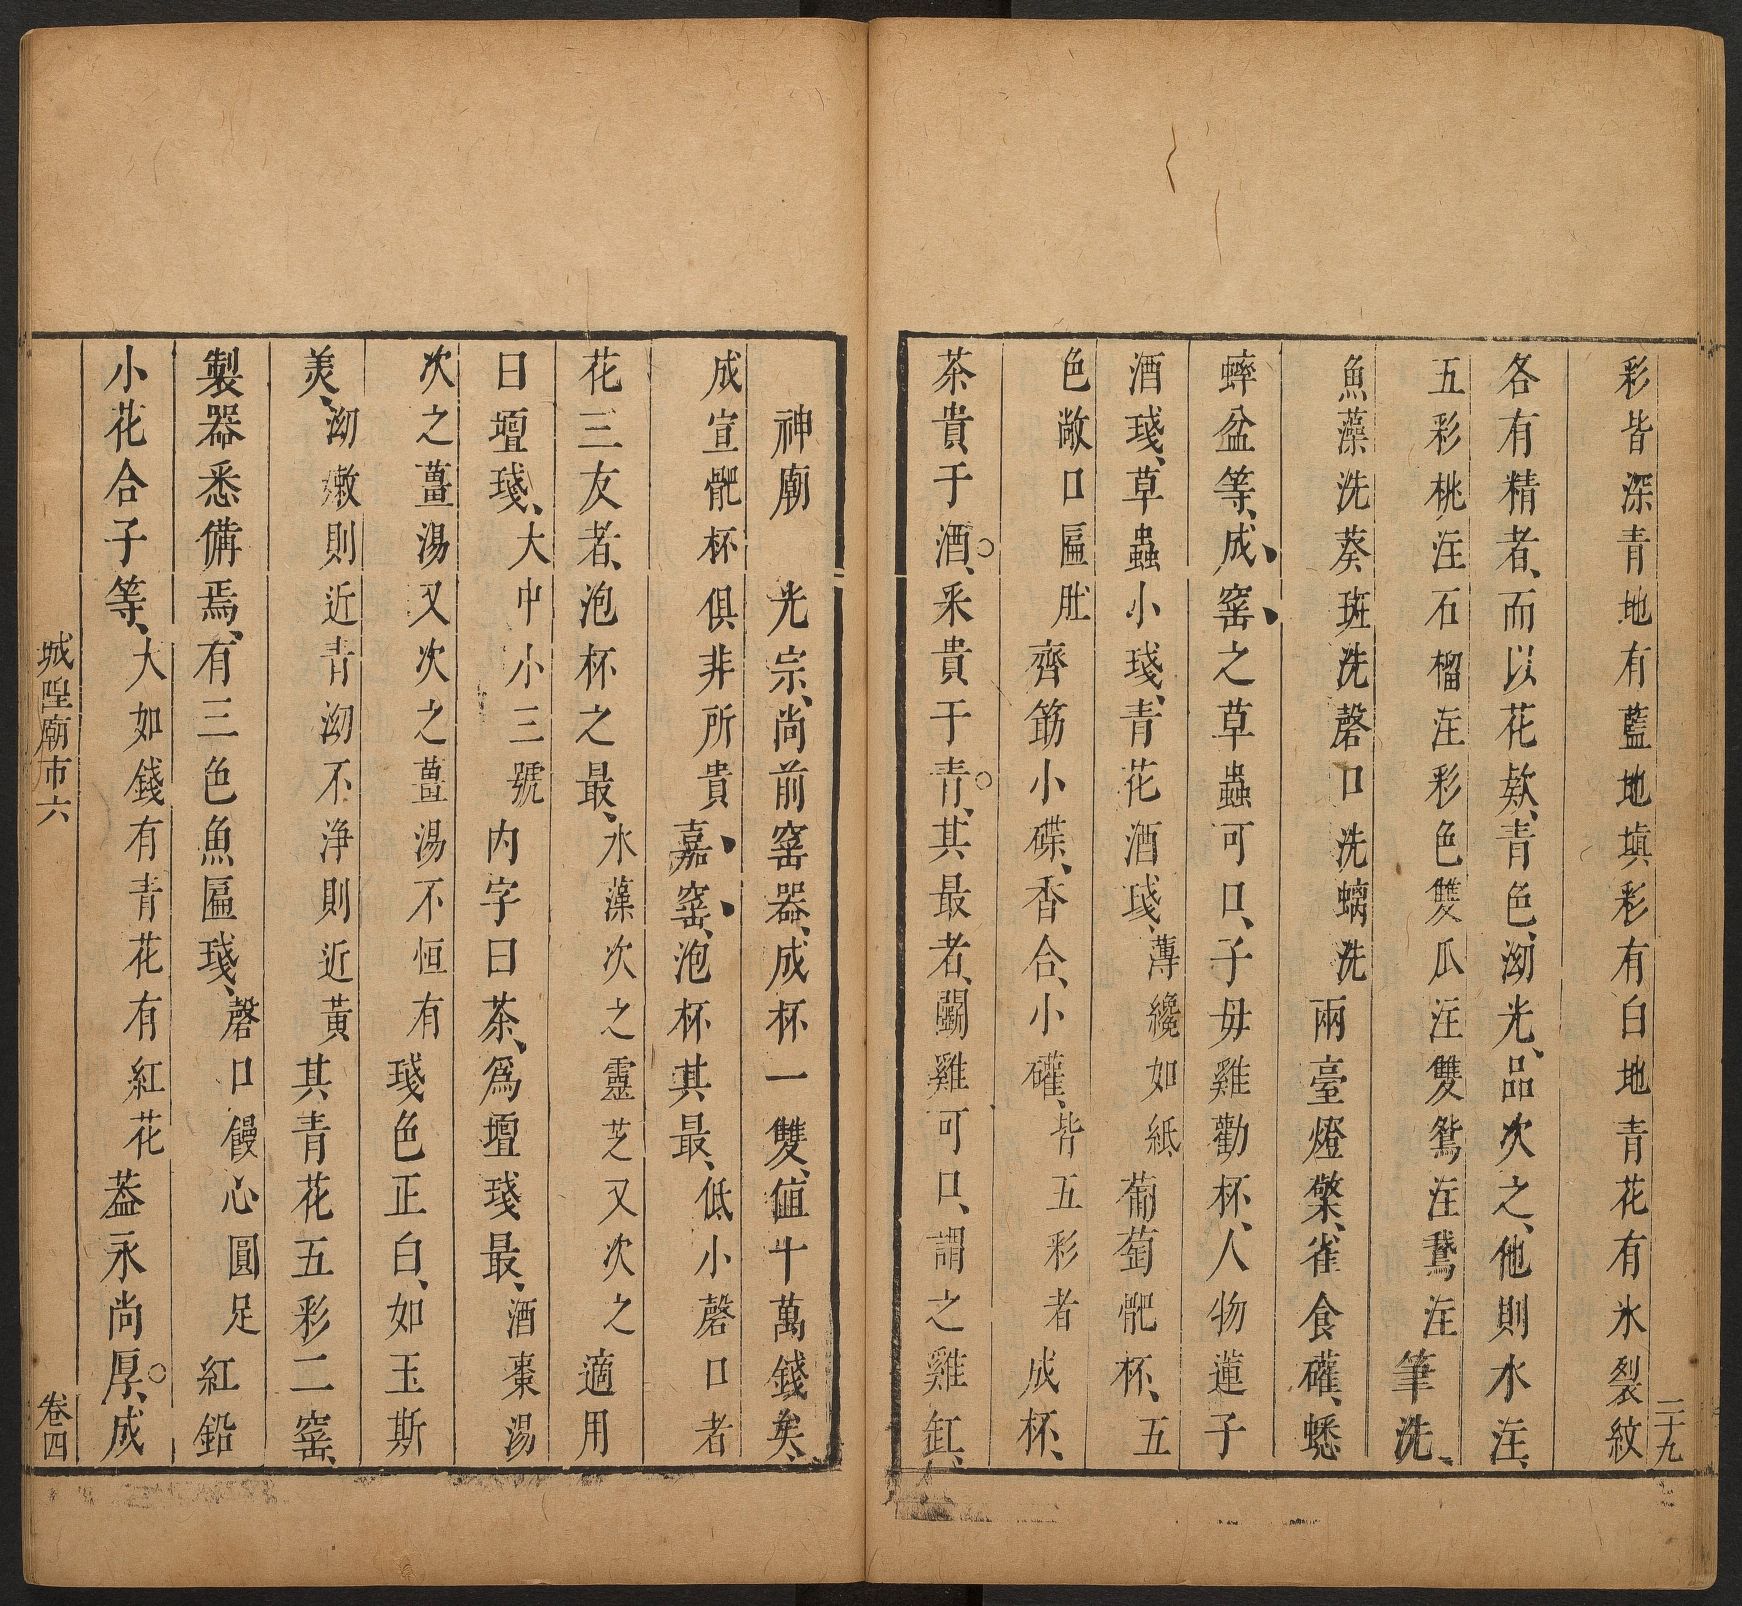 彩皆深青地有藍地塡彩有白地青花有氷裂紋
各有精者、而以花欵、青色、泑光、品次之、他則水注、
五彩桃注石榴注彩色雙瓜注雙鴛注鵞注筆洗、
魚藻洗葵班洗磬口洗螭洗兩臺燈檠、雀食礶、蟋
蟀盆等、成、窑、之草蟲可口、子毋雞勸杯、人物蓮子
酒琖、草蟲小琖、青花酒琖、薄纔如紙葡萄䶕杯、五
色敞口匾肚齊筯小碟、香合、小礶、皆五彩者成杯、
茶貴于酒、釆貴于青、其最者、鬭雞可口、謂之雞缸、
神廟 光宗、尚前窑器、成杯一雙、値十萬錢矣、
成宣䶕杯俱非所貴嘉、窑、泡杯其最、低小磬口者
花三友者、泡杯之最、水藻次之靈芝又次之適用
曰壇琖、大中小三號内字曰茶、爲壇琖最、酒棗湯
次之薑湯又次之薑湯不恒有琖色正白、如玉斯
羙、泑嫩則近青泑不浄則近黄其青花五彩二窑、
製器悉備焉、有三色魚匾琖、磬口饅心圓足紅鉛
小花合子等、大如錢有青花有紅花葢永尚厚、成
城隍廟市六
卷四
二十九